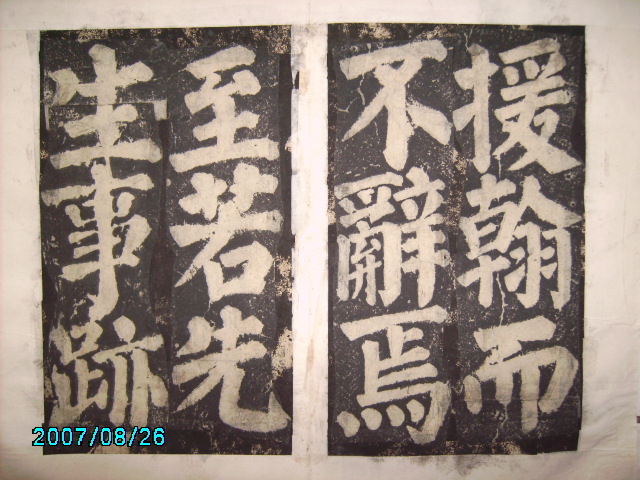 援翰而
不辭焉
至若先
生事跡
2007/08/26